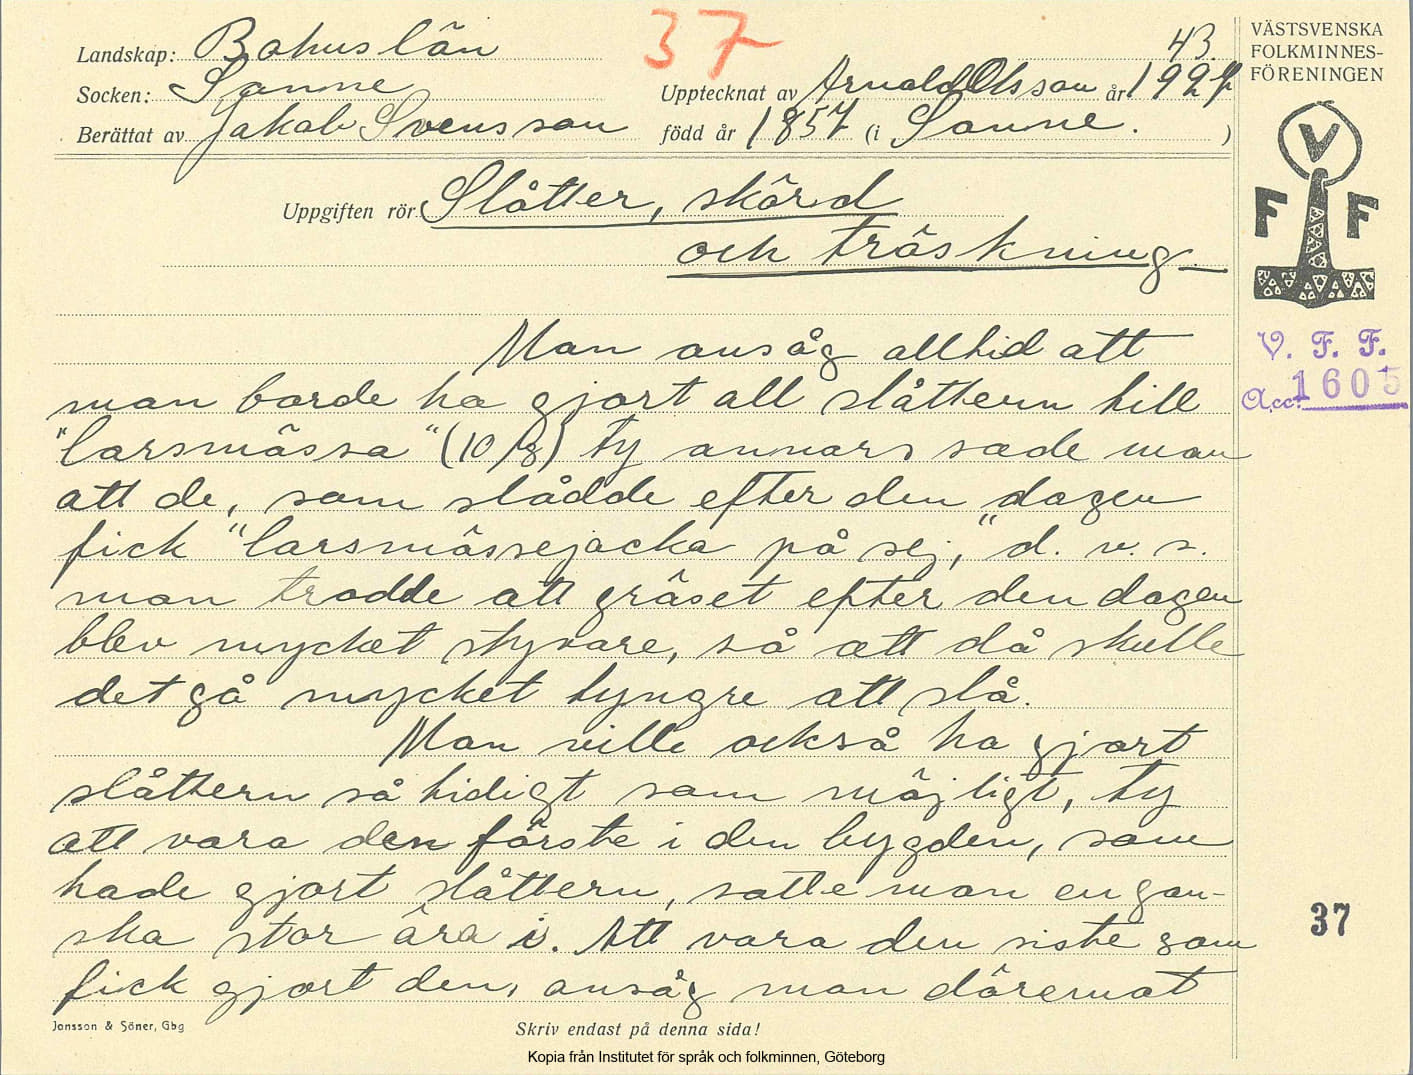 37
43.
Landskap: Bohuslän
Socken: Sanne
Upptecknat av Arnold Olsson år 1927
Berättat av Jakob Svensson
född år 1857 (i Sanne. )
VÄSTSVENSKA
FOLKMINNES-
FÖRENINGEN
V
F F
Uppgiften rör Slåtter, skörd
och träskning.
V. F. F.
Acc: 1605
Man ansåg alltid att
man borde ha gjort all slåttern till
"larsmässa" (10/8) ty annars sade man
att de, som slådde efter den dagen
fick "larsmässejacka på sej," d. v. s.
man trodde att gräset efter den dagen
blev mycket styvare, så att då skulle
det gå mycket tyngre att slå.
Man ville också ha gjort
slåttern så tidigt som möjligt, ty
att vara den förste i den bygden, som
hade gjort slåttern, satte man en gan-
ska stor ära i. Att vara den siste som
fick gjort den, ansåg man däremot
37
Jonsson & Söner, Gbg
Skriv endast på denna sida!
Kopia från Institutet för språk och folkminnen, Göteborg